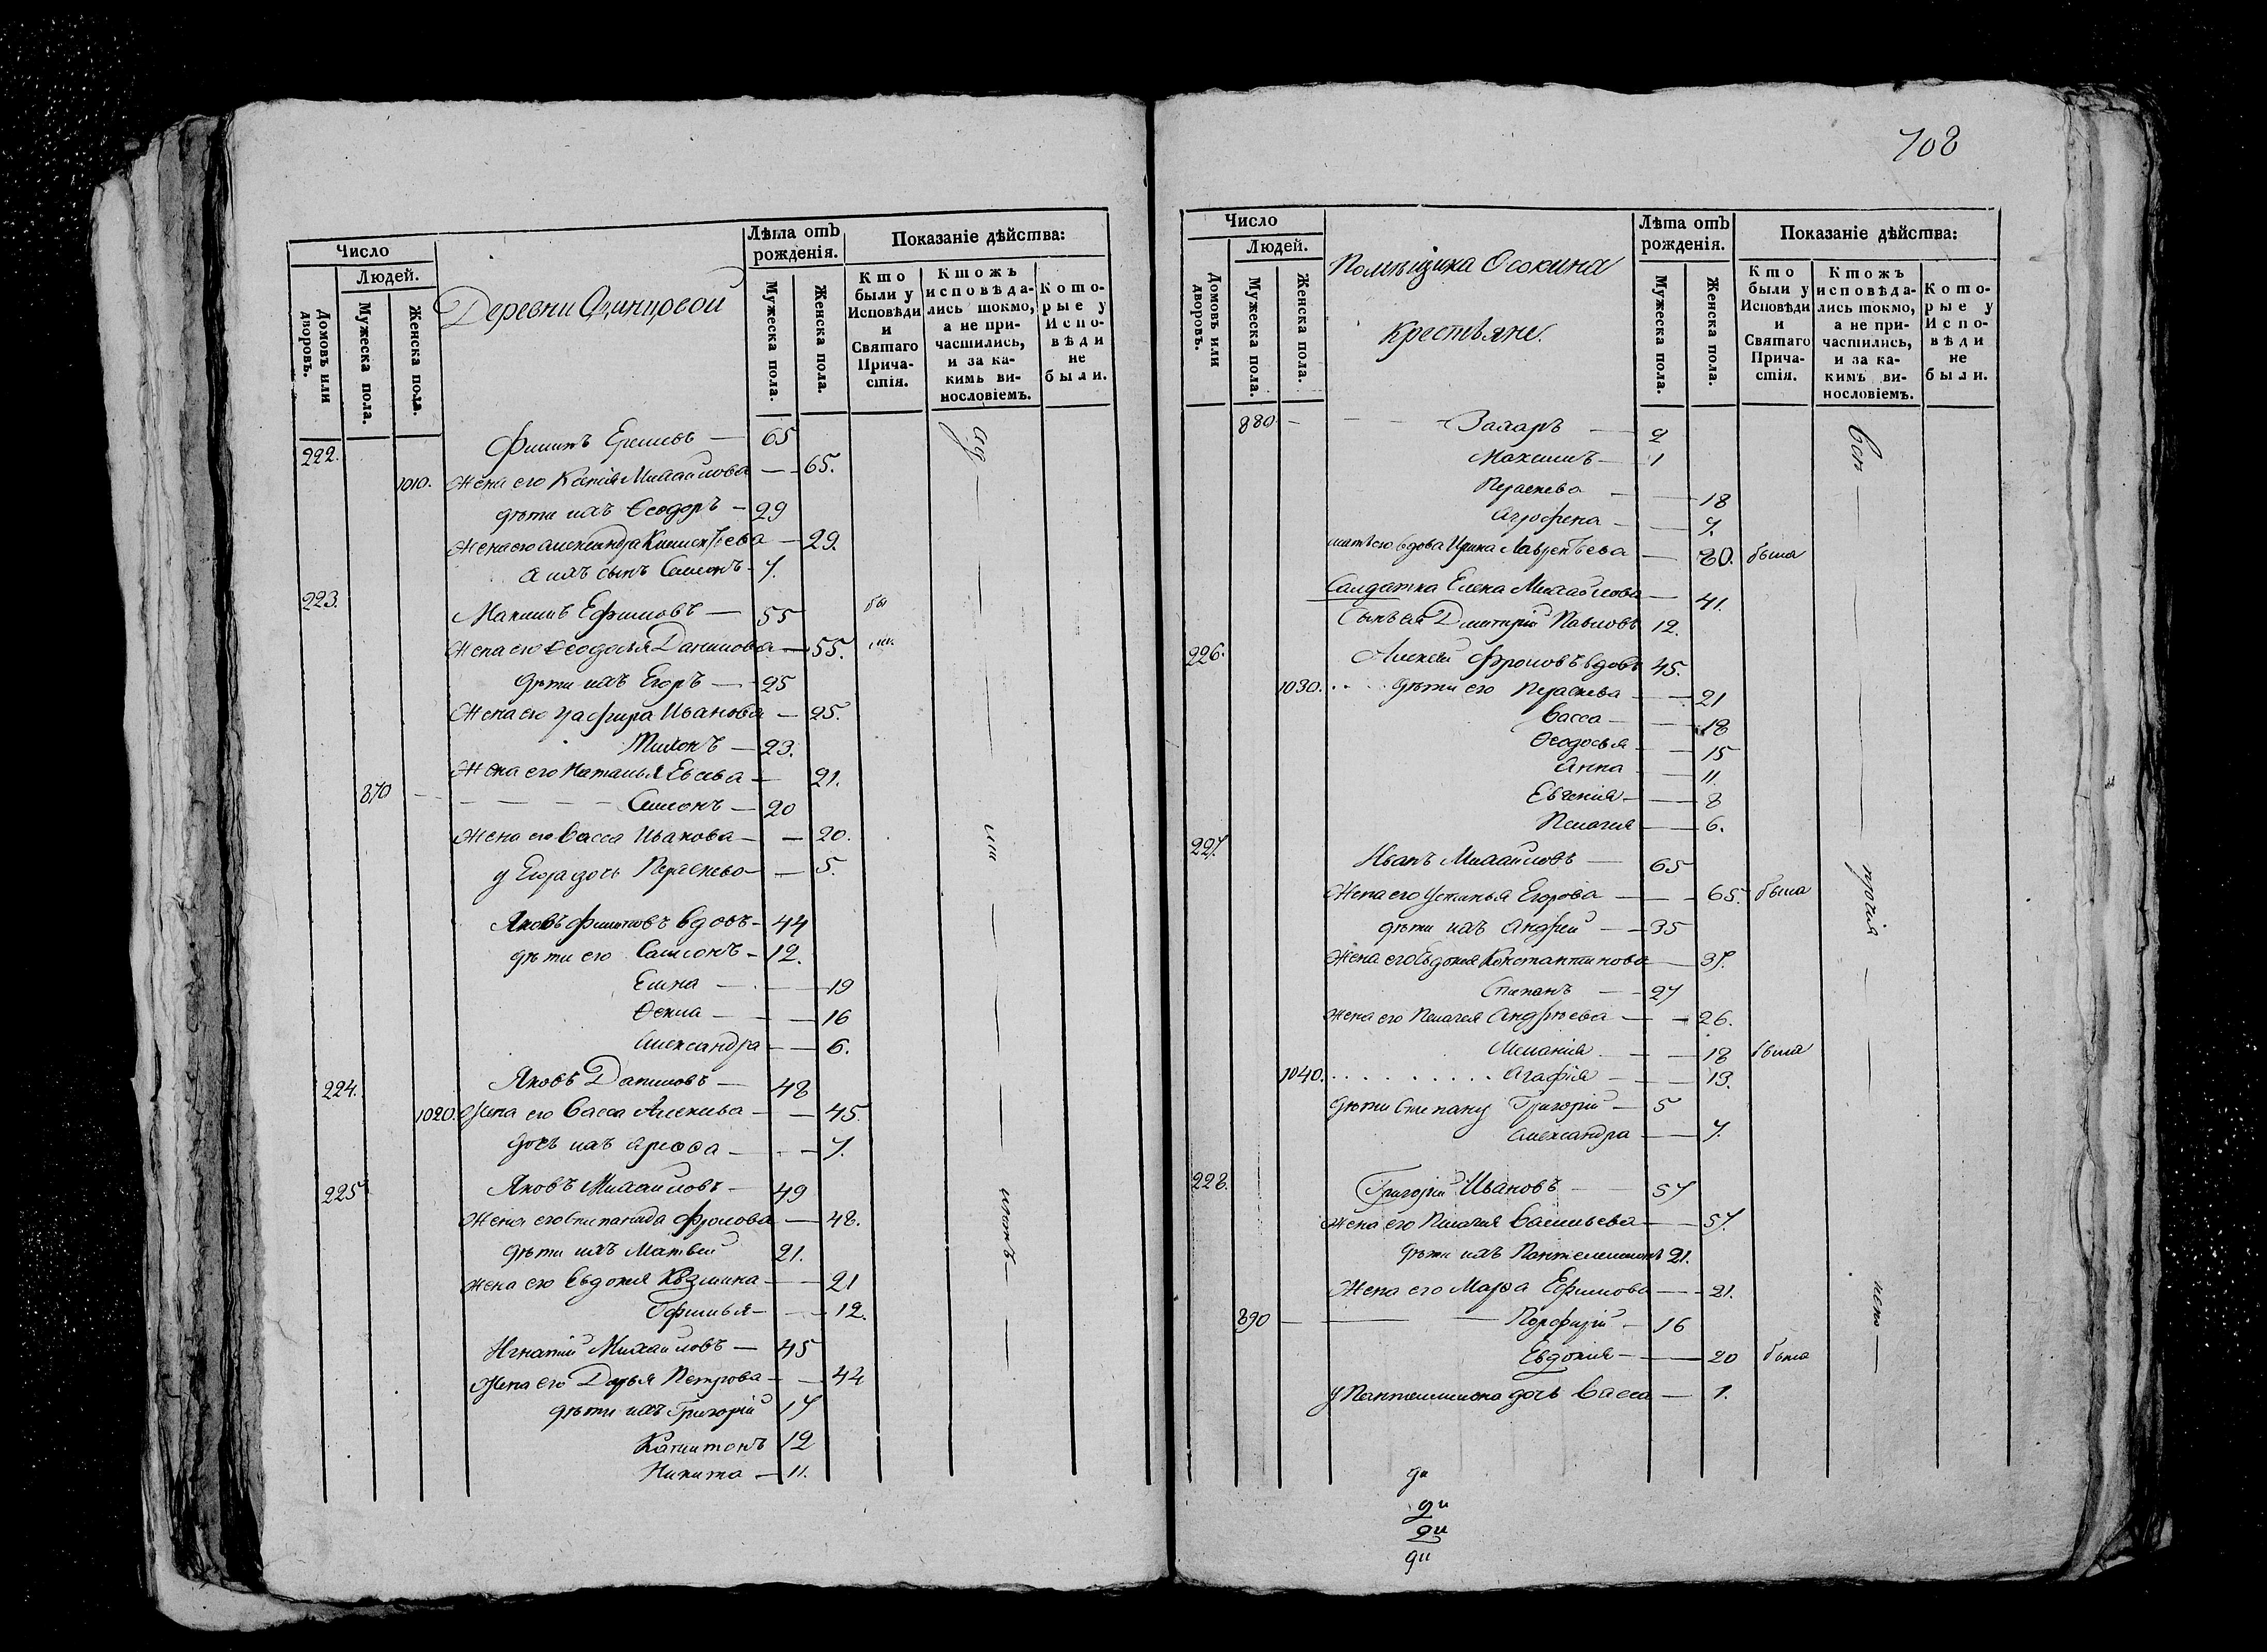 Число
Людей.
Домовъ или дворовъ.
Мужеска пола.
Женска пола.
Деревни Одинцовой
Лѣта отъ рожденія.
Мужеска пола.
Женска пола.
Показаніе дѣйства:
Кто были у Исповѣди и Святаго Причастія.
Ктожъ исповѣдались токмо, а не причастились, и за какимъ винословіемъ.
Которые у Исповѣди не были.
222. Филипъ Ермиловъ — 65
1010. Жена его Михайлова — 65.
дѣти ихъ Ѳеодоръ — 29
Жена его Александра — 29.
а ихъ сынъ Самсонъ — 7.
223. Максимъ Ефимовъ — 55 бы
Жена его Ѳеодосья Данилова — 55. ли.
дѣти ихъ Егоръ — 25
Жена его Иванова — 25.
Тихонъ — 23.
Жена его Наталья — 21.
870 — Самсонъ — 20
Жена его Васса Иванова — 20.
у Егора дочь Парасковья — 5.
Яковъ Филиповъ вдовъ — 44
дѣти его Самсонъ — 12.
Елена — 19
Ѳекла — 16
Александра — 6.
224. Яковъ Даниловъ — 48
1020. Жена его Васса Алексѣева — 45.
дочь ихъ — 7.
225 Яковъ Михайловъ — 49
Жена его Степанида Фролова — 48.
дѣти ихъ Матвей 21.
Жена его Евдокия Козмина — 21
Ефимья — 12.
Игнатий Михайловъ — 45
Жена его Дарья Петрова — 44
дѣти ихъ Григорій 17
Капитонъ 12
Никита — 11.
708
Число
Людей.
Домовъ или дворовъ.
Мужеска пола.
Женска пола.
Помѣщика Осокина
Крестьяне.
Лѣта отъ рожденія.
Мужеска пола.
Женска пола.
Показаніе дѣйства:
Кто были у Исповѣди и Святаго Причастія.
Ктожъ исповѣдались токмо, а не причастились, и за какимъ винословіемъ.
Которые у Исповѣди не были.
880 — Захаръ — 9
Максимъ — 1
— 18
— 7.
мать его вдова Ирина Лаврентьева — 80. была
Салдатка Елена Михайлова — 41.
Сынъ ея Дмитрій Павловъ 12.
226. Алексѣй Фроловъ вдовъ 45.
1030. дѣти его — 21
Васса — 18
Ѳеодосья — 15
Анна — 11
Евгения — 8
Пелагия — 6.
227. Иванъ Михайловъ — 65
Жена его Устинья Егорова — 65. была
дѣти ихъ Андрей — 35
Жена его Евдокия Константинова — 37.
Степанъ — 27
Жена его Пелагия Андрѣева — 26.
Мелания — 18 была
1040. Агафия — 13.
дѣти Степану Григорій — 5
Александра — 7.
228. Григорій Ивановъ — 57
жена его Пелагия Васильева — 57.
дѣти ихъ Пантелеимонъ 21.
Жена его Марѳа Ефимова — 21.
890 — Порфирій — 16
Евдокия — 20 была
у Пантелимона дочь Васса — 1.